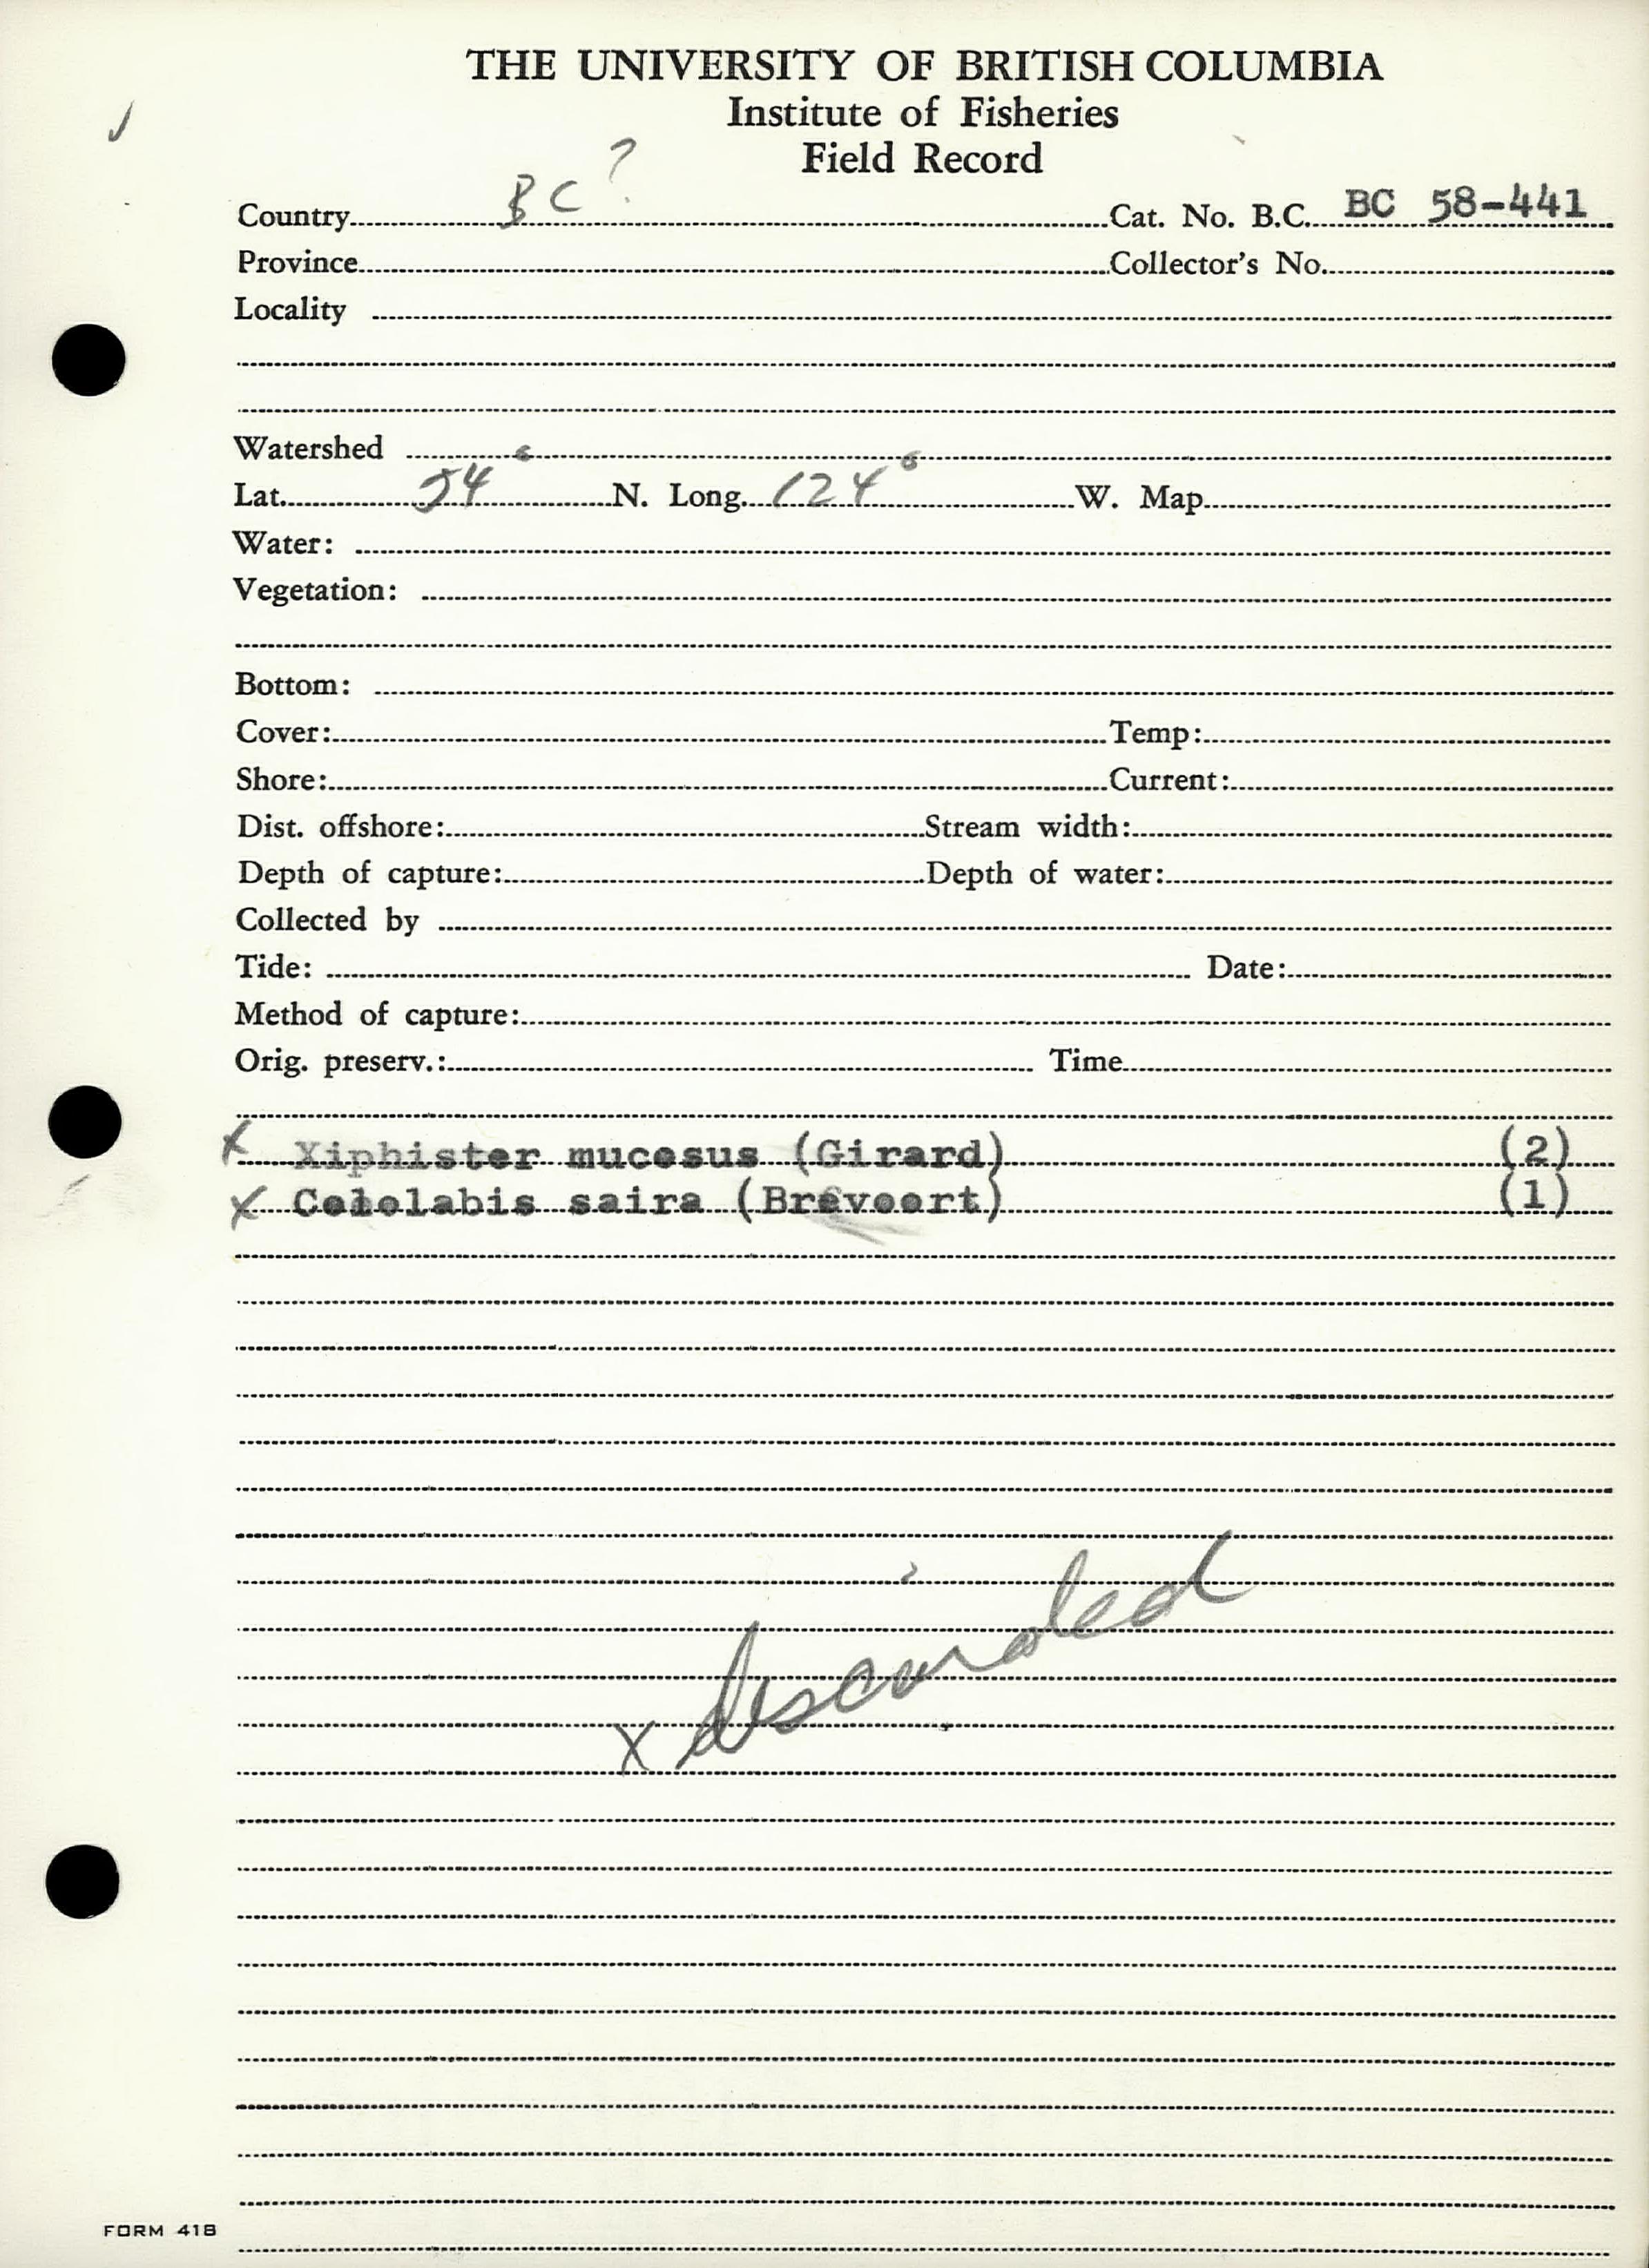 THE UNIVERSITY OF BRITISH COLUMBIA
Institute of Fisheries
Field Record
✓
Country BC ? Cat. No. B.C. BC 58-441
Province Collector's No.
Locality
Watershed
Lat. 54° N. Long. 124° W. Map
Water:
Vegetation:
Bottom:
Cover: Temp:
Shore: Current:
Dist. offshore: Stream width:
Depth of capture: Depth of water:
Collected by
Tide: Date:
Method of capture:
Orig. preserv.: Time
x Xiphister mucosus (Girard) (2)
x Cololabis saira (Brevoort) (1)
x discarded
FORM 41B